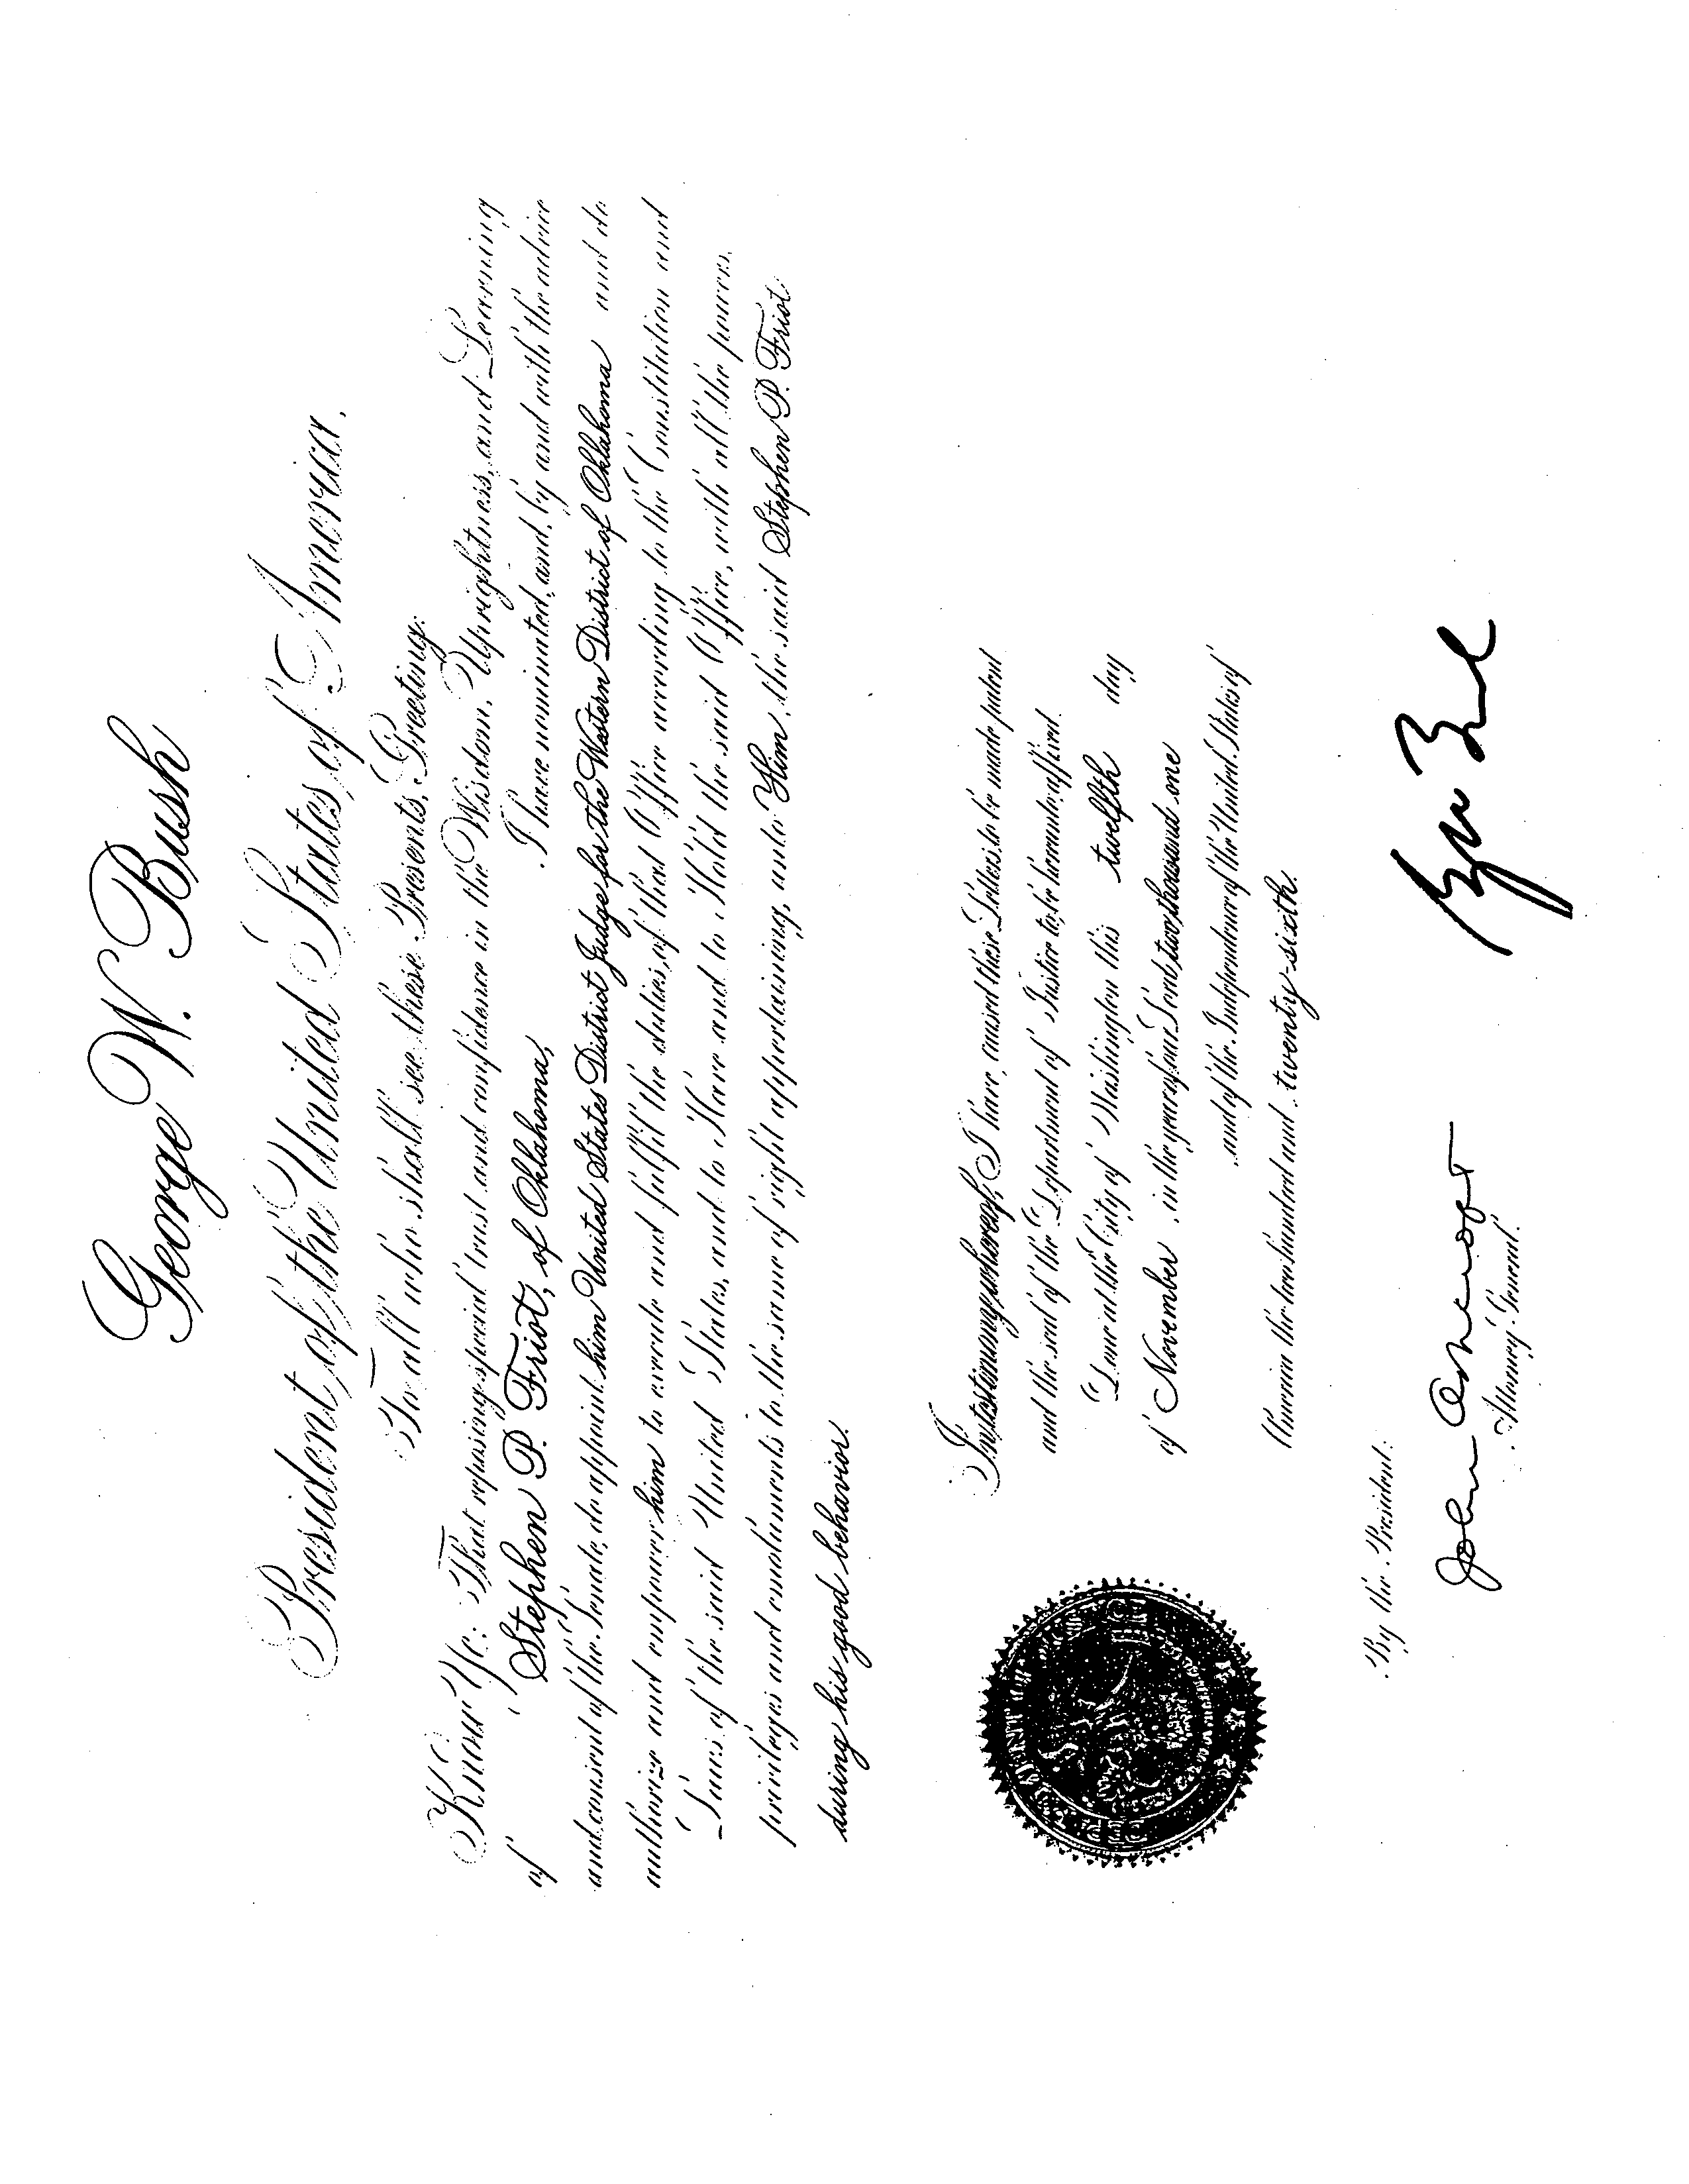 George W. Bush
President of the United States of America,
To all who shall see these Presents, Greeting:
Know Ye: That reposing special trust and confidence in the Wisdom, Uprightness, and Learning
of Stephen P. Friot, of Oklahoma, I have nominated, and, by and with the advice
and consent of the Senate, do appoint him United States District Judge for the Western District of Oklahoma and do
authorize and empower him to execute and fulfil the duties of that Office according to the Constitution and
Laws of the said United States, and to Have and to Hold the said Office, with all the powers,
privileges and emoluments to the same of right appertaining, unto Him, the said Stephen P. Friot
during his good behavior.
In testimony whereof, I have caused these Letters to be made patent
and the seal of the Department of Justice to be hereunto affixed.
Done at the City of Washington this twelfth day
of November, in the year of our Lord two thousand one
and of the Independence of the United States of
America the two hundred and twenty-sixth.
By the President:
John Ashcroft
Attorney General.